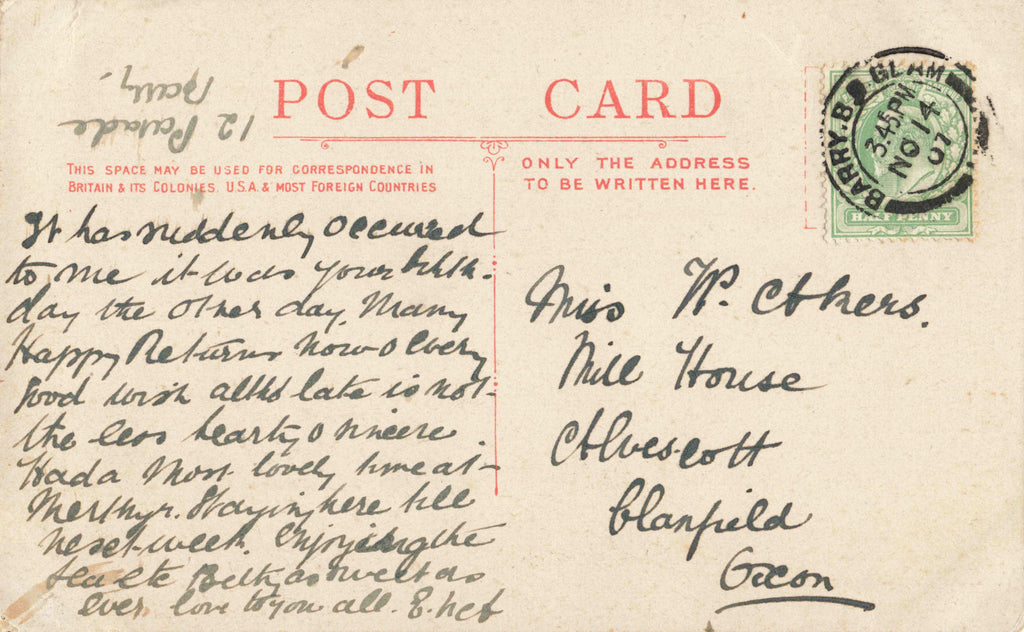 12 Parade
Barry.
POST CARD
THIS SPACE MAY BE USED FOR CORRESPONDENCE IN
BRITAIN & ITS COLONIES. U.S.A. & MOST FOREIGN COUNTRIES
ONLY THE ADDRESS
TO BE WRITTEN HERE.
BARRY.B. GLAM
3.45PM
NO 14
07
HALFPENNY
It has suddenly occurred
to me it was your birth-
day the other day. Many
Happy Returns now & every
good wish altho late is not
the less hearty & sincere.
Had a most lovely time at
Merthyr. Staying here till
next week. Enjoying the
sea etc Betty as sweet as
ever love to you all. E.
Miss W. Akers.
Mill House
Alvescott
Clanfield
Oxon